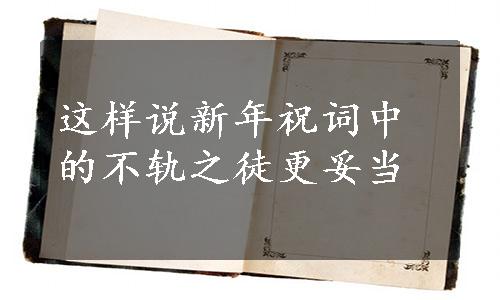 这样说新年祝词中
的不轨之徒更妥当